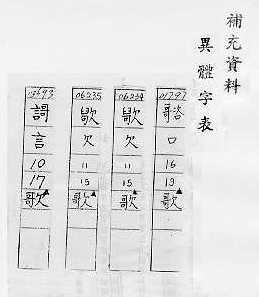 補充資料
異體字表
01797
口
16
19
歌
06234
欠
11
15
歌
06235
欠
11
15
歌
謌
言
10
17
歌